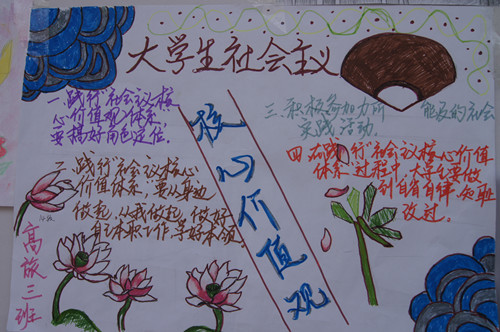 大学生社会主义
核心价值观
一、践行"社会主义核
心价值观"体系
要搞好角色定位.
二、践行"社会主义核心
价值体系",要从身边
做起,从我做起,做好
自己本职工作,学好本领.
三、积极参加力所 能及的社会
实践活动.
四、在践行"社会主义核心价值
体系"过程中,大学生要做
到自省自律,知耻
改过.
高旅三班